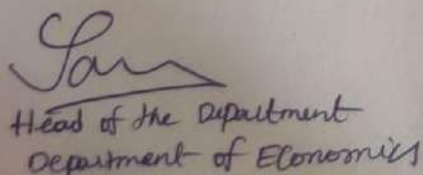 Head of the Department
Department of Economics